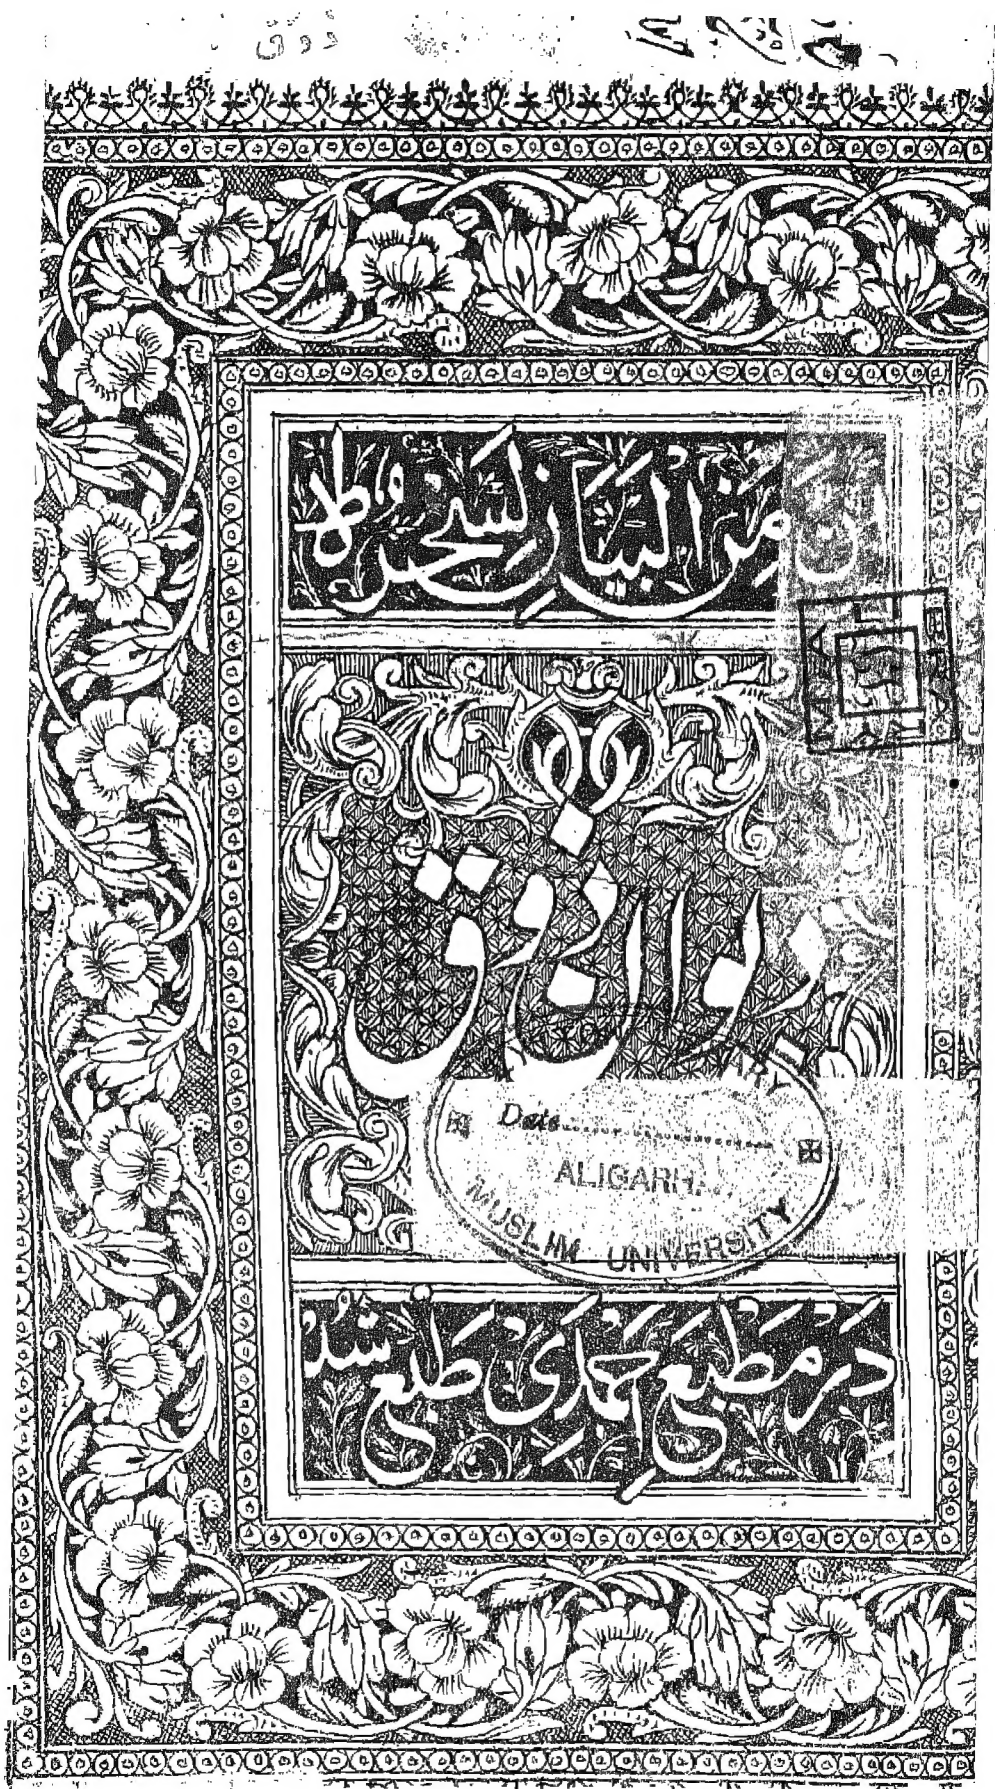 ان مِنَ البَیَان لَسِحرًا ط
دیوان ذوق
ARY
Date
ALIGARH
MUSLIM UNIVERSITY
دَر مَطبَع اَحمدَی طَبع شُد